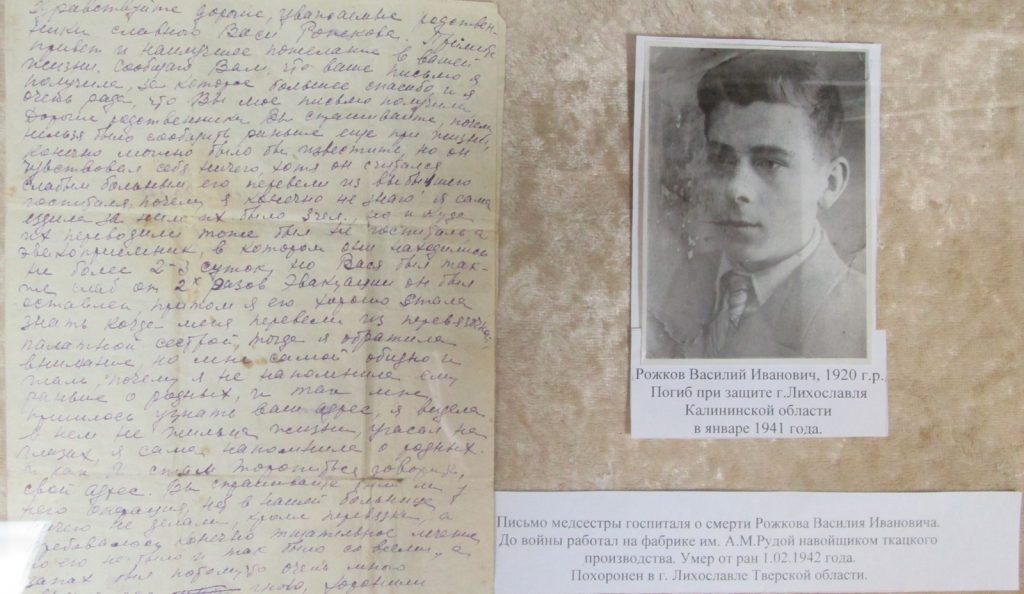 Здравствуйте дорогие, уважаемые родствен-
ники славного Васи Рожкова. Примите
привет и наилучшие пожелание в вашей
жизни. Сообщаю Вам, что ваше письмо я
получила, за которое большое спасибо, и я
очень рада, что Вы мое письмо получили
Дорогие родственники Вы спрашиваете, почему
нельзя было сообщить раньше еще при жизни,
конечно можно было бы известить, но он
чувствовал себя ничего, хотя он считался
слабым больным, его перевели из
госпиталя, почему я конечно не знаю, я сама
ездила за ними их было 3 чел., но и куда
их переводили тоже был не госпиталь а
эвакоприемник в котором они находились
не более 2-3 суток, но Вася был так-
же слаб от 2х разов Эвакуации он был
оставлен, притом я его хорошо стала
знать когда меня перевели из перевязочной
палатной сестрой, тогда я обратила
внимание но мне самой обидно и
почему я не напомнила ему
раньше о родных, и так мне
пришлось узнать ваш адрес, я видела
в нем не жильца жизни, угасал на
глазах, я сама напомнила о родных.
и как стал торопиться говорить,
свой адрес. Вы спрашиваете у
него операция, но в нашей больнице
ничего не делали, кроме перевязки, а
требовалось конечно тщательное лечение
этого не было и так было со всеми, а
запах был потому что очень много
гною,
Рожков Василий Иванович, 1920 г.р.
Погиб при защите г.Лихославля
Калининской области
в январе 1941 года.
Письмо медсестры госпиталя о смерти Рожкова Василия Ивановича.
До войны работал на фабрике им. А.М.Рудой навойщиком ткацкого
производства. Умер от ран 1.02.1942 года.
Похоронен в г. Лихославле Тверской области.